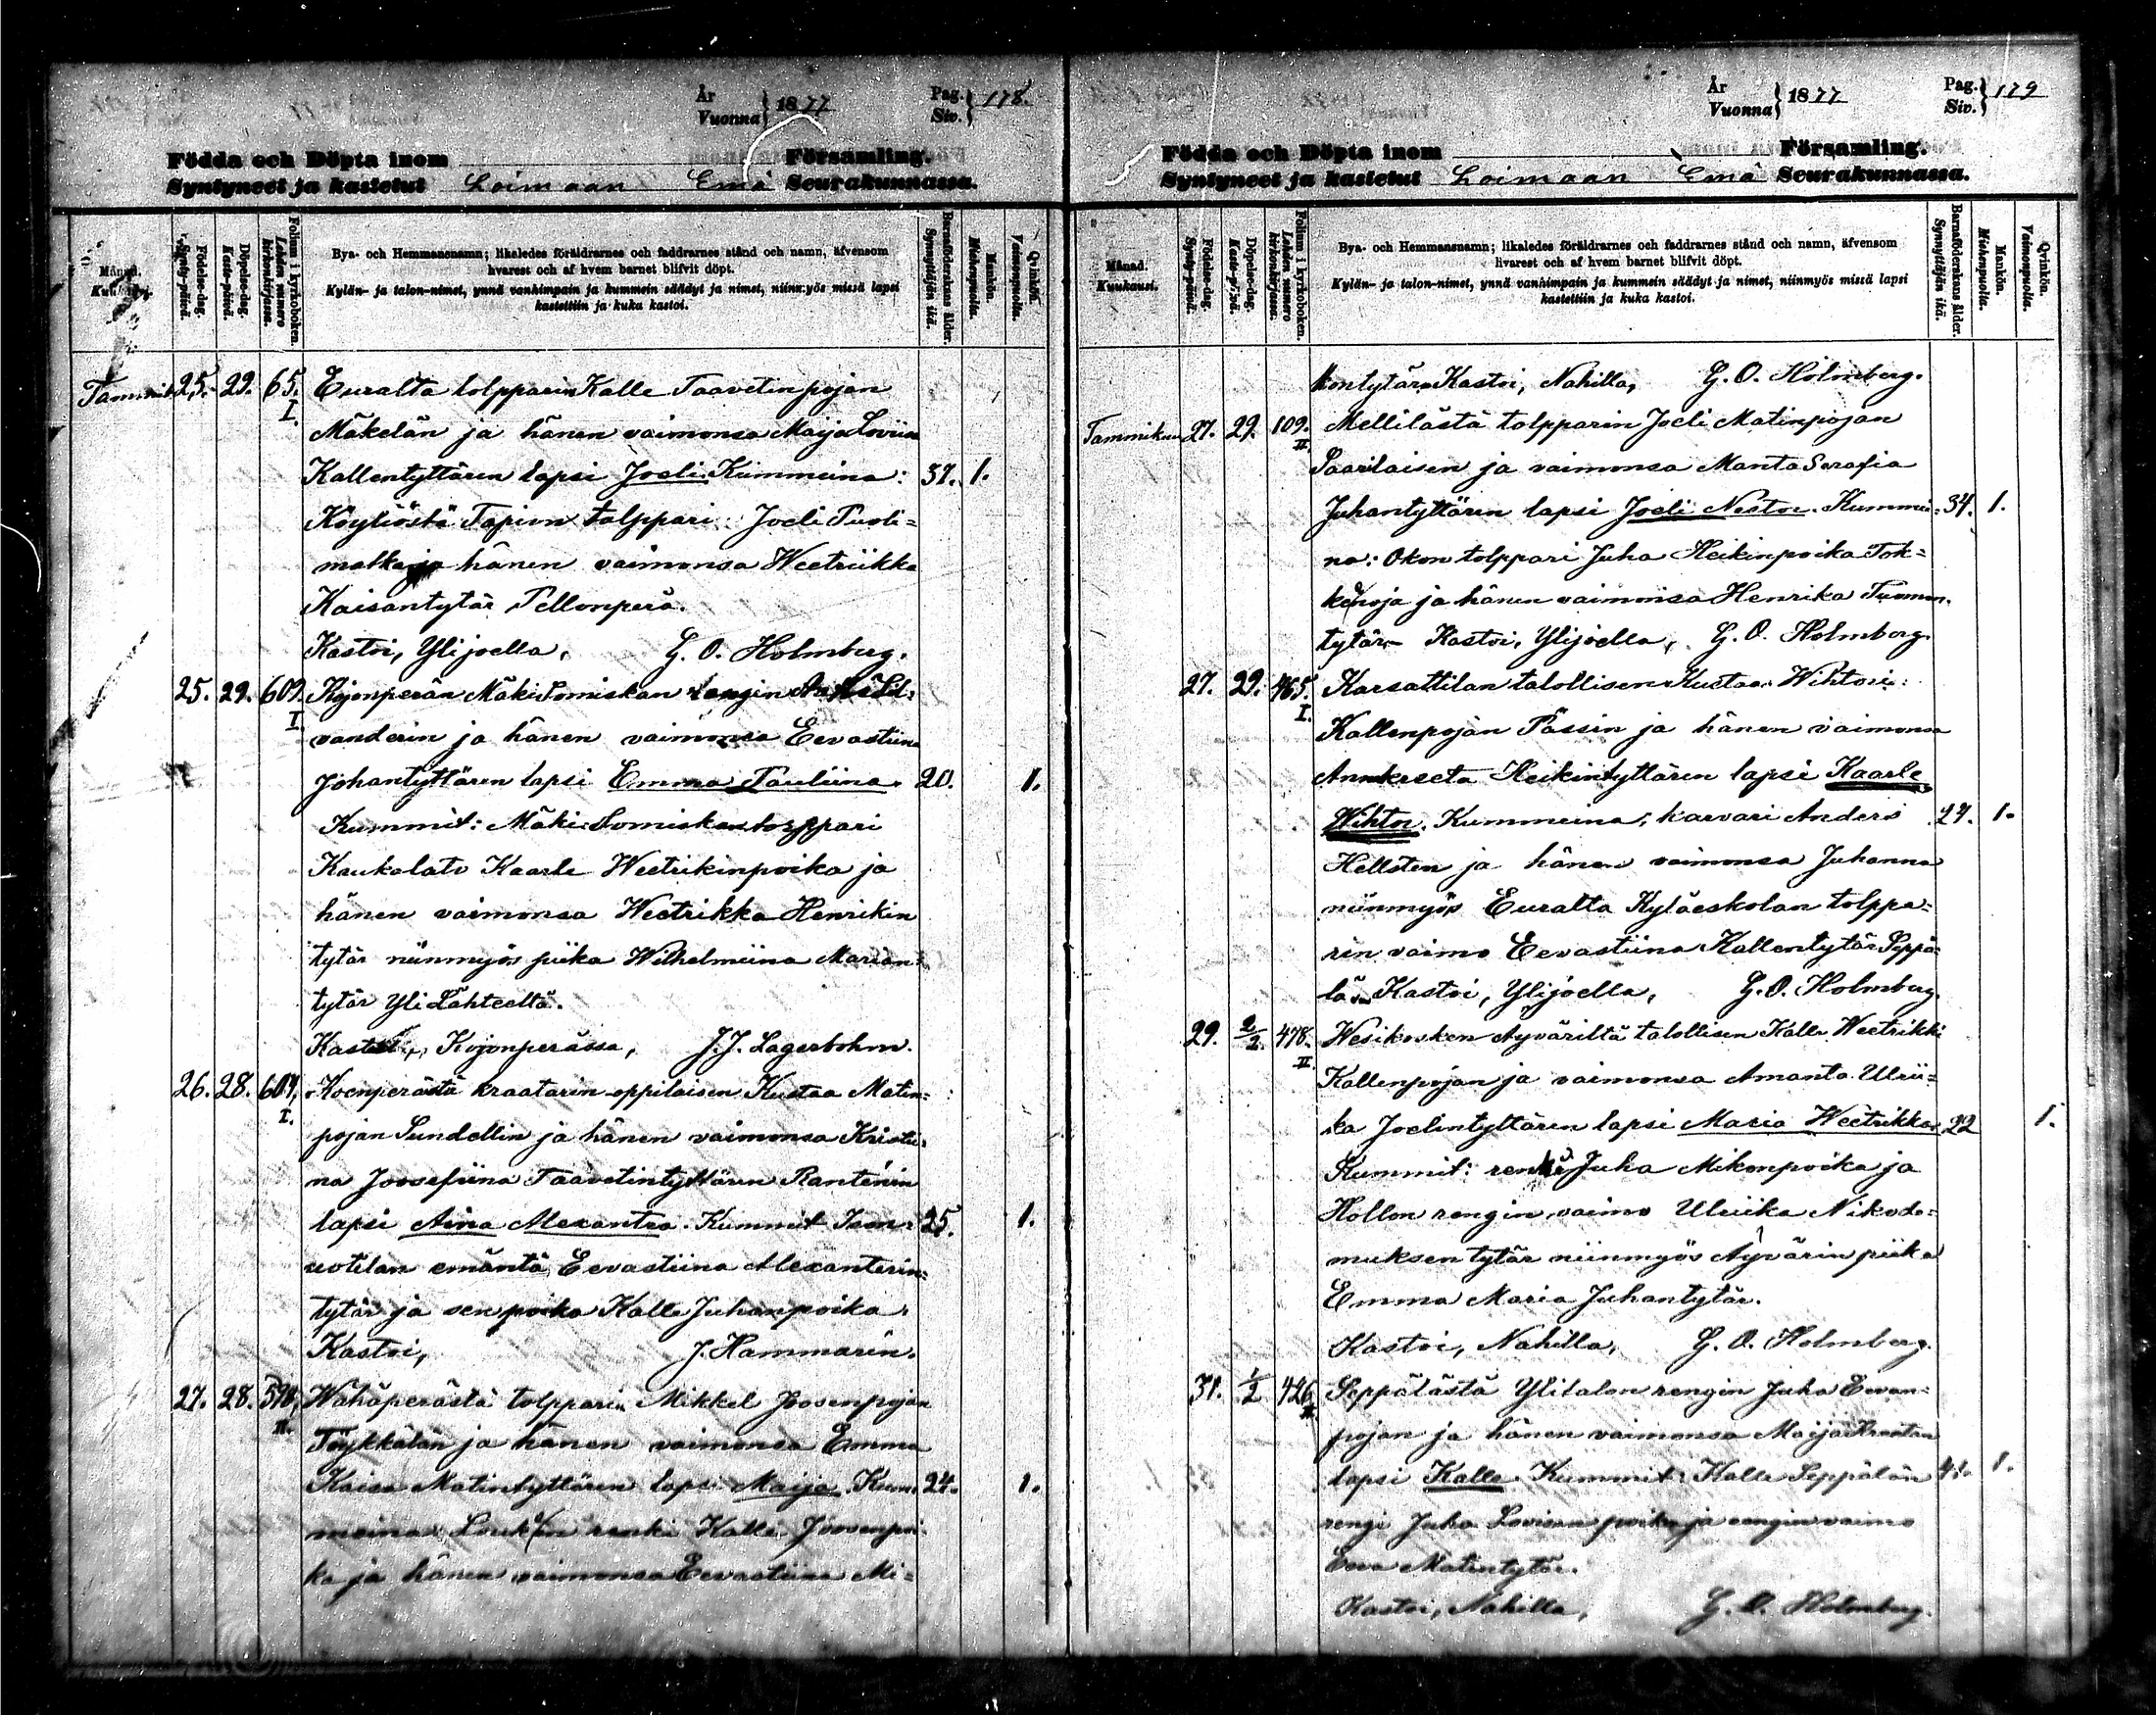 År
Vuonna } 1877
Pag.
Siv. } 178.
Födda och Döpta inom Församling.
Syntyneet ja kastetut Loimaan Emä Seurakunnassa.
Månad.
Kuukausi.
Födelse-dag.
Synty-päivä.
Döpelse-dag.
Kaste-päivä.
Folium i kyrkoboken.
Lehden numero kirkonkirjassa.
Bya- och Hemmansnamn; likaledes föräldrarnes och faddrarnes stånd och namn, äfvensom
hvarest och af hvem barnet blifvit döpt.
Kylän- ja talon-nimet, ynnä vanhimpain ja kummein säädyt ja nimet, niinmyös missä lapsi
kastettiin ja kuka kastoi.
Barnaföderskans ålder.
Synnyttäjän ikä.
Mankön.
Miehenpuolia.
Qvinkön.
Vaimonpuolia.
Tammik. 25. 29. 65. I. Euralta tolpparin Kalle Taavetinpojan
Mäkelän ja hänen vaimonsa Maija Loviisa
Kallentyttären lapsi Joeli. Kummeina: 37. 1.
Köyliöstä Tapion tolppari Joeli Tuoli=
matka ja hänen vaimonsa Weetriikka
Kaisantytär Pellonperä.
Kastoi, Ylijoella, G. O. Holmberg.
25. 29. 609. I. Kojonperän Mäki Somiskan rengin
vanderin ja hänen vaimonsa Eevastiina
Johantyttären lapsi Emma Pauliina. 20. 1.
Kummit: Mäki Somiskan torppari
Kaukalato Kaarle Weetrikinpoika ja
hänen vaimonsa Weetrikka Henrikin
tytär niinmyös piika Wilhelmiina Marian
tytär Yli Lähteeltä.
Kastoi, Kojonperässä, J. J. Lagerbohm.
26. 28. 604. I. Koenperästä kraatarin oppilaisen Kustaa Matin=
pojan Sundellin ja hänen vaimonsa Kristii=
na Joosefiina Taavetintyttären Rantenin
lapsi Aina Alexantra. Kummit Ison= 25. 1.
uotilan emäntä Eevastiina Alexanterin=
tytär ja sen poika Kalle Juhanpoika.
Kastoi, J. Hammarén.
27. 28. 598. II. Wähäperästä tolpparin Mikkel Joosenpojan
Töykkälän ja hänen vaimonsa Emma
Kaisa Matintyttären lapsi Maija. Kum= 24. 1.
meina: renki Kalle Joosenpoi=
ka ja hänen vaimonsa Eevastiina Mi=
År
Vuonna } 1877
Pag.
Siv. } 179
Födda och Döpta inom Församling.
Syntyneet ja kastetut Loimaan Emä Seurakunnassa.
Månad.
Kuukausi.
Födelse-dag.
Synty-päivä.
Döpelse-dag.
Kaste-päivä.
Folium i kyrkoboken.
Lehden numero kirkonkirjassa.
Bya- och Hemmansnamn; likaledes föräldrarnes och faddrarnes stånd och namn, äfvensom
hvarest och af hvem barnet blifvit döpt.
Kylän- ja talon-nimet, ynnä vanhimpain ja kummein säädyt ja nimet, niinmyös missä lapsi
kastettiin ja kuka kastoi.
Barnaföderskans ålder.
Synnyttäjän ikä.
Mankön.
Miehenpuolia.
Qvinkön.
Vaimonpuolia.
kontytär. Kastoi, Nahilla, G. O. Holmberg.
Tammikuu 27. 29. 109. II. Mellilästä tolpparin Joeli Matinpojan
Saarilaisen ja vaimonsa Manta Serafia
Juhantyttären lapsi Joeli Nestor. Kummei= 34. 1.
na: Okon tolppari Juha Heikinpoika Tok=
kenoja ja hänen vaimonsa Henrika Tuomon
tytär. Kastoi, Ylijoella, G. O. Holmberg.
27. 29. 465. I. Karsattilan talollisen Kustaa Wihtori
Kallenpojan Pässin ja hänen vaimonsa
Annkreeta Heikintyttären lapsi Kaarle
Wihtor. Kummeina; karvari Anders 27. 1.
Hellsten ja hänen vaimonsa Juhanna
niinmyös Euralta Kyläeskolan tolppa=
rin vaimo Eevastiina Kallentytär Seppä=
lä. Kastoi, Ylijoella, G. O. Holmberg.
29. 2/2. 478. II. Wesikosken Äyväriltä talollisen Kalle Weetrikki
Kallenpojan ja vaimonsa Amanta Ulrii=
ka Joelintyttären lapsi Maria Weetrikka. 22 1.
Kummit: renki Juha Mikonpoika ja
Hollon rengin vaimo Ulriika Nikode=
muksen tytär niinmyös Äyvärin piika
Emma Maria Juhantytär.
Kastoi, Nahilla, G. O. Holmberg.
31. 1/2 426 II. Seppälästä Ylitalon rengin Juha Eevan=
pojan ja hänen vaimonsa Maija
lapsi Kalle. Kummit: Kalle Seppälän 41. 1.
rengi Juha Lovisan poika ja rengin vaimo
Eeva Matintytär.
Kastoi, Nahilla, G. O. Holmberg.